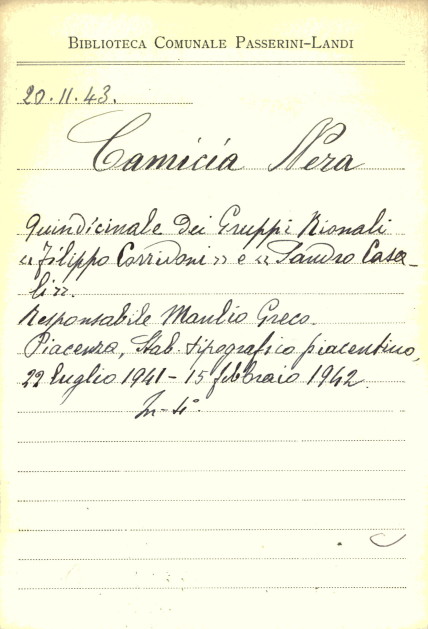 BIBLIOTECA COMUNALE PASSERINI-LANDI
20.11.43.
Camicia Nera
Quindicinale dei Gruppi Rionali
«Filippo Corridoni» e «Sandro Casa-
li».
Responsabile Manlio Greco.
Piacenza, Stab. tipografico piacentino,
22 luglio 1941 - 15 febbraio 1942.
In-4°.